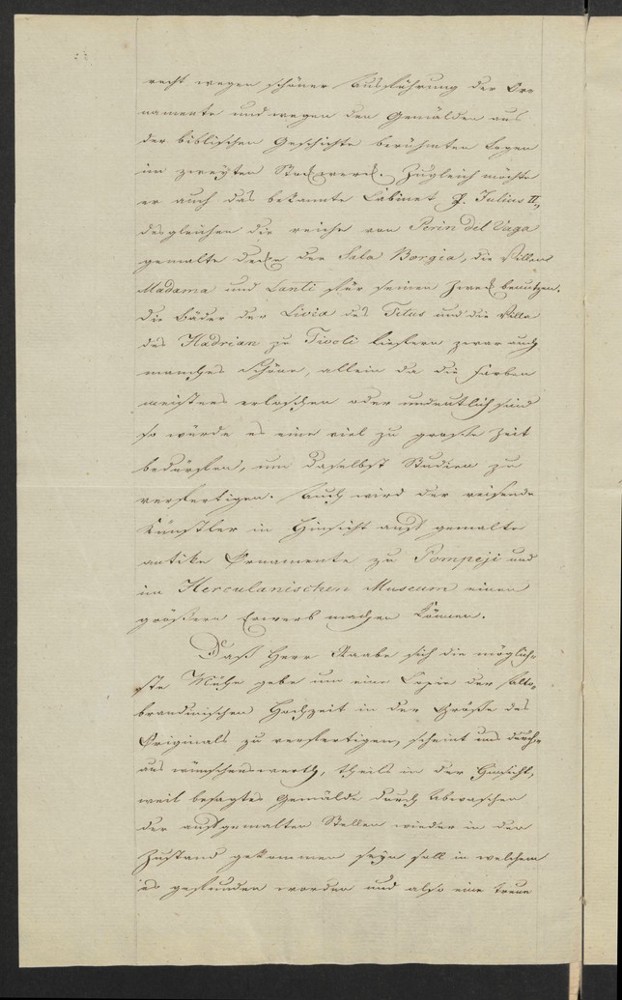 recht wegen schöner Ausführung der Or-
namente und wegen den Gemälden aus
der biblischen Geschichte berühmten Logen
im zweyten Stockwerck. Zugleich möchte
er auch das bekannte Cabinet P. Julius II,
desgleichen die reiche von Perin del Vaga
gemalte Decke der Sala Borgia, die Villen
Madama und Lanti für seinen Zweck benutzen.
Die Bäder der Livia des Titus und die Villa
des Hadrian zu Tivoli liefern zwar auch
manches Schöne, allein da die Farben
meistens erloschen oder undeutlich sind
so würde es eine viel zu große Zeit
bedürfen, um daselbst Studien zu
verfertigen. Auch wird der reisende
Künstler in Hinsicht auf gemalte
antike Ornamente zu Pompeji und
im Herculanischen Museum einen
größern Erwerb machen können.
Daß Herr Raabe sich die möglich-
ste Mühe gebe um eine Copie der Aldo-
brandinischen Hochzeit in der Größe des
Originals zu verfertigen, scheint uns durch-
aus wünschenswerth, theils in der Hinsicht,
weil besagtes Gemälde durch Abwaschen
der aufgemalten Stellen wieder in den
Zustand gekommen seyn soll in welchem
es gefunden worden und also eine treue